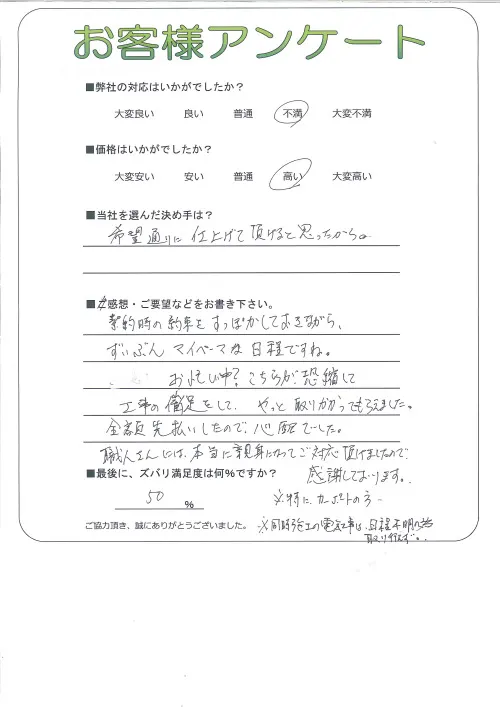 お客様アンケート
■弊社の対応はいかがでしたか？
大変良い 良い 普通 不満 大変不満
■価格はいかがでしたか？
大変安い 安い 普通 高い 大変高い
■当社を選んだ決め手は？
希望通りに仕上げて頂けると思ったから。
■感想・ご要望などをお書き下さい。
契約時の約束をすっぽかしておきながら、
ずいぶんマイペースな日程ですね。
お忙い中？こちらが恐縮して
工事の催促をして、やっと取りかかってもらえました。
全額先払いしたので、心配でした。
職人さんには、本当に親身になってご対応頂けましたので
感謝しております。
■最後に、ズバリ満足度は何％ですか？
50 %
※特に、カーポートの方
ご協力頂き、誠にありがとうございました。
※同時施工の電気工事は、日程不明の為